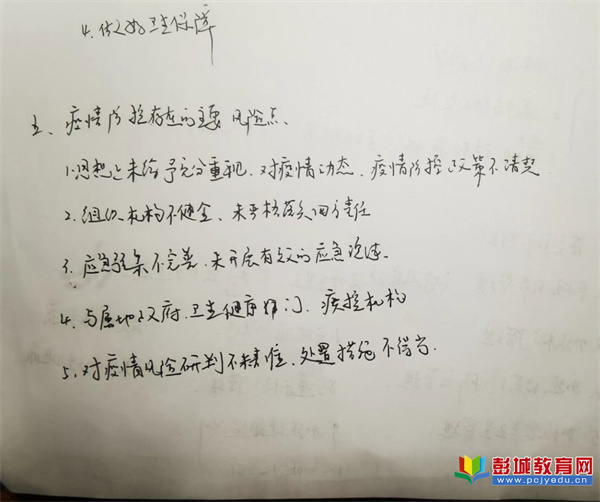 4. 做好卫生保障
五、疫情防控存在的主要风险点、
1.思想上未给予充分重视、对疫情动态、疫情防控政策不清楚
2.组织机构不健全、未严格落实四方责任
3.应急预案不完善、未开展有效的应急演练.
4.与属地政府、卫生健康部门、疾控机构
5.对疫情风险研判不精准、处置措施不得当.
彭城教育网
www.pcjyedu.cn